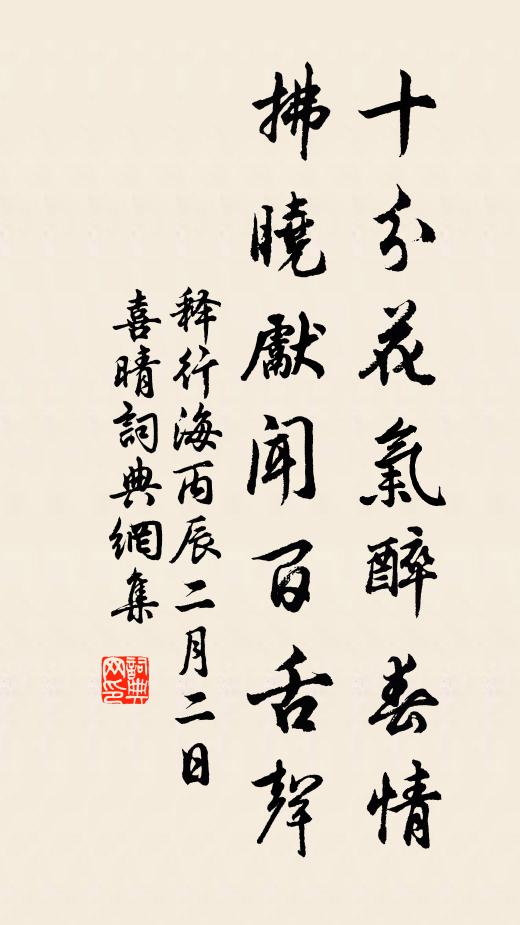 十分花氣醉春情
拂曉獻聞百舌聲
释行海丙辰二月二日
喜晴詞典網集
詞典网印